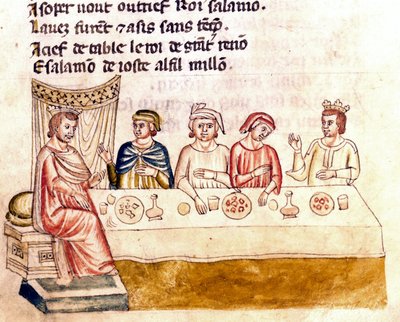 Asoper uont outrief Roi salamo.
Lauez furẽt ⁊ asis sans tẽçõ.
Acief de table le roi de grãt renõ
E salamõ de ioste al fil millõ.